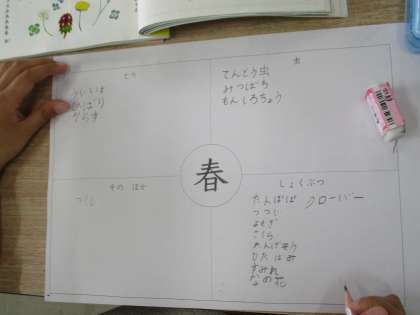 とり
うぐいす
ひばり
からす
虫
てんとう虫
みつばち
もんしろちょう
春
その ほか
つくし
しょくぶつ
たんぽぽ クローバー
つつじ
よもぎ
さくら
れんげそう
かたばみ
すみれ
なの花